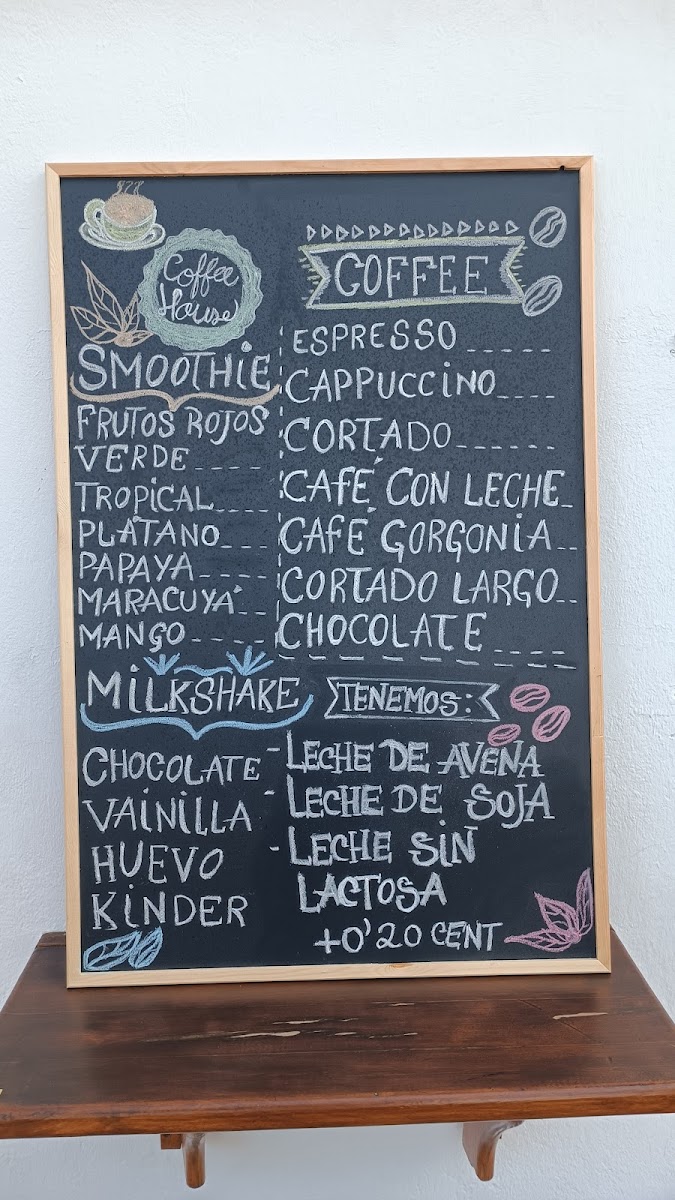 Coffee
House
SMOOTHIE
FRUTOS ROJOS
VERDE
TROPICAL
PLÁTANO
PAPAYA
MARACUYÁ
MANGO
MILKSHAKE
CHOCOLATE
VAINILLA
HUEVO
KINDER
COFFEE
ESPRESSO
CAPPUCCINO
CORTADO
CAFÉ CON LECHE
CAFÉ GORGONIA
CORTADO LARGO
CHOCOLATE
TENEMOS:
- LECHE DE AVENA
- LECHE DE SOJA
- LECHE SIN
LACTOSA
+0'20 CENT